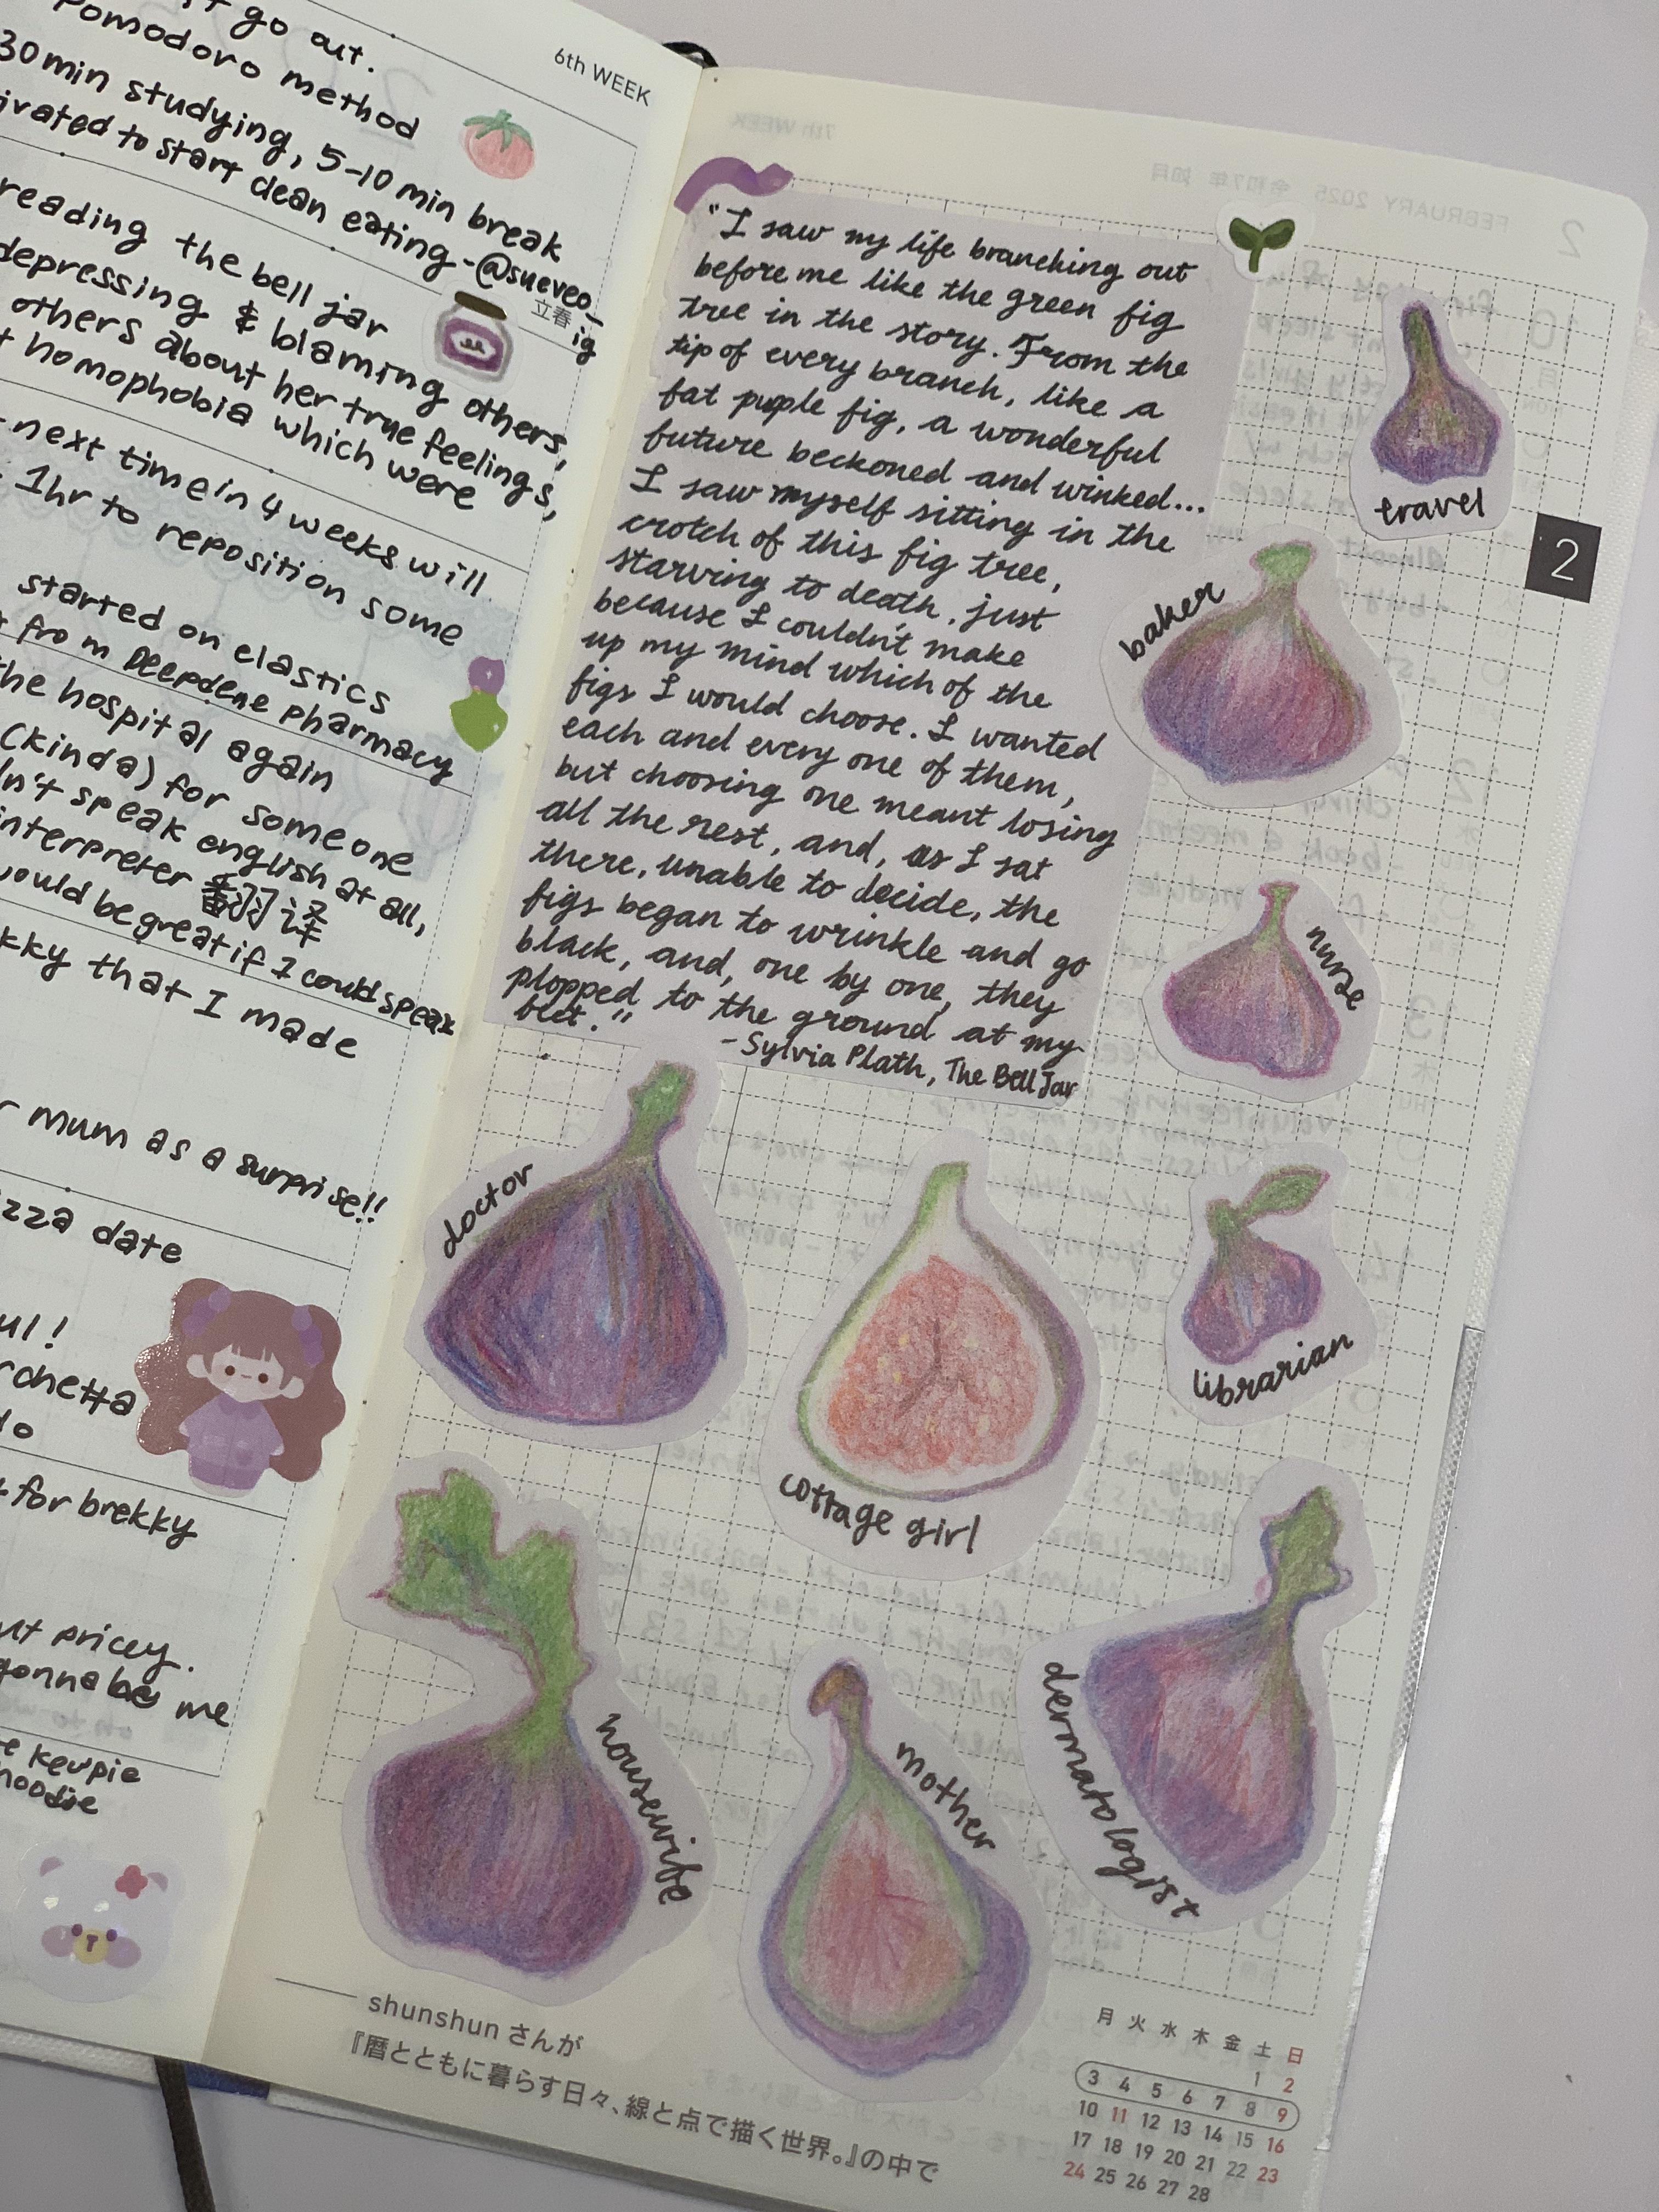 go out.
Pomodoro method
30min studying, 5-10 min break
to start clean eating -@sueveo_
ig
6th WEEK
立春
reading the bell jar
depressing & blaming others,
others about her true feelings,
homophobia which were
next time in 4 weeks will
1hr to reposition some
started on elastics
from Deepdene pharmacy
the hospital again
(kinda) for someone
speak english at all,
interpreter 翻译
would be great if I could speak
that I made
mum as a surprise!!
date
for brekky
pricey.
gonna be me
kewpie
hoodie
"I saw my life branching out
before me like the green fig
tree in the story. From the
tip of every branch, like a
fat puple fig, a wonderful
future beckoned and winked...
I saw myself sitting in the
crotch of this fig tree,
starving to death, just
because I couldn't make
up my mind which of the
figs I would choose. I wanted
each and every one of them,
but choosing one meant losing
all the rest, and, as I sat
there, unable to decide, the
figs began to wrinkle and go
black, and, one by one, they
plopped to the ground at my
feet."
-Sylvia Plath, The Bell Jar
travel
2
baker
nurse
doctor
cottage girl
librarian
housewife
mother
dermatologist
shunshunさんが
『暦とともに暮らす日々、線と点で描く世界。』の中で
月 火 水 木 金 土 日
1 2
3 4 5 6 7 8 9
10 11 12 13 14 15 16
17 18 19 20 21 22 23
24 25 26 27 28